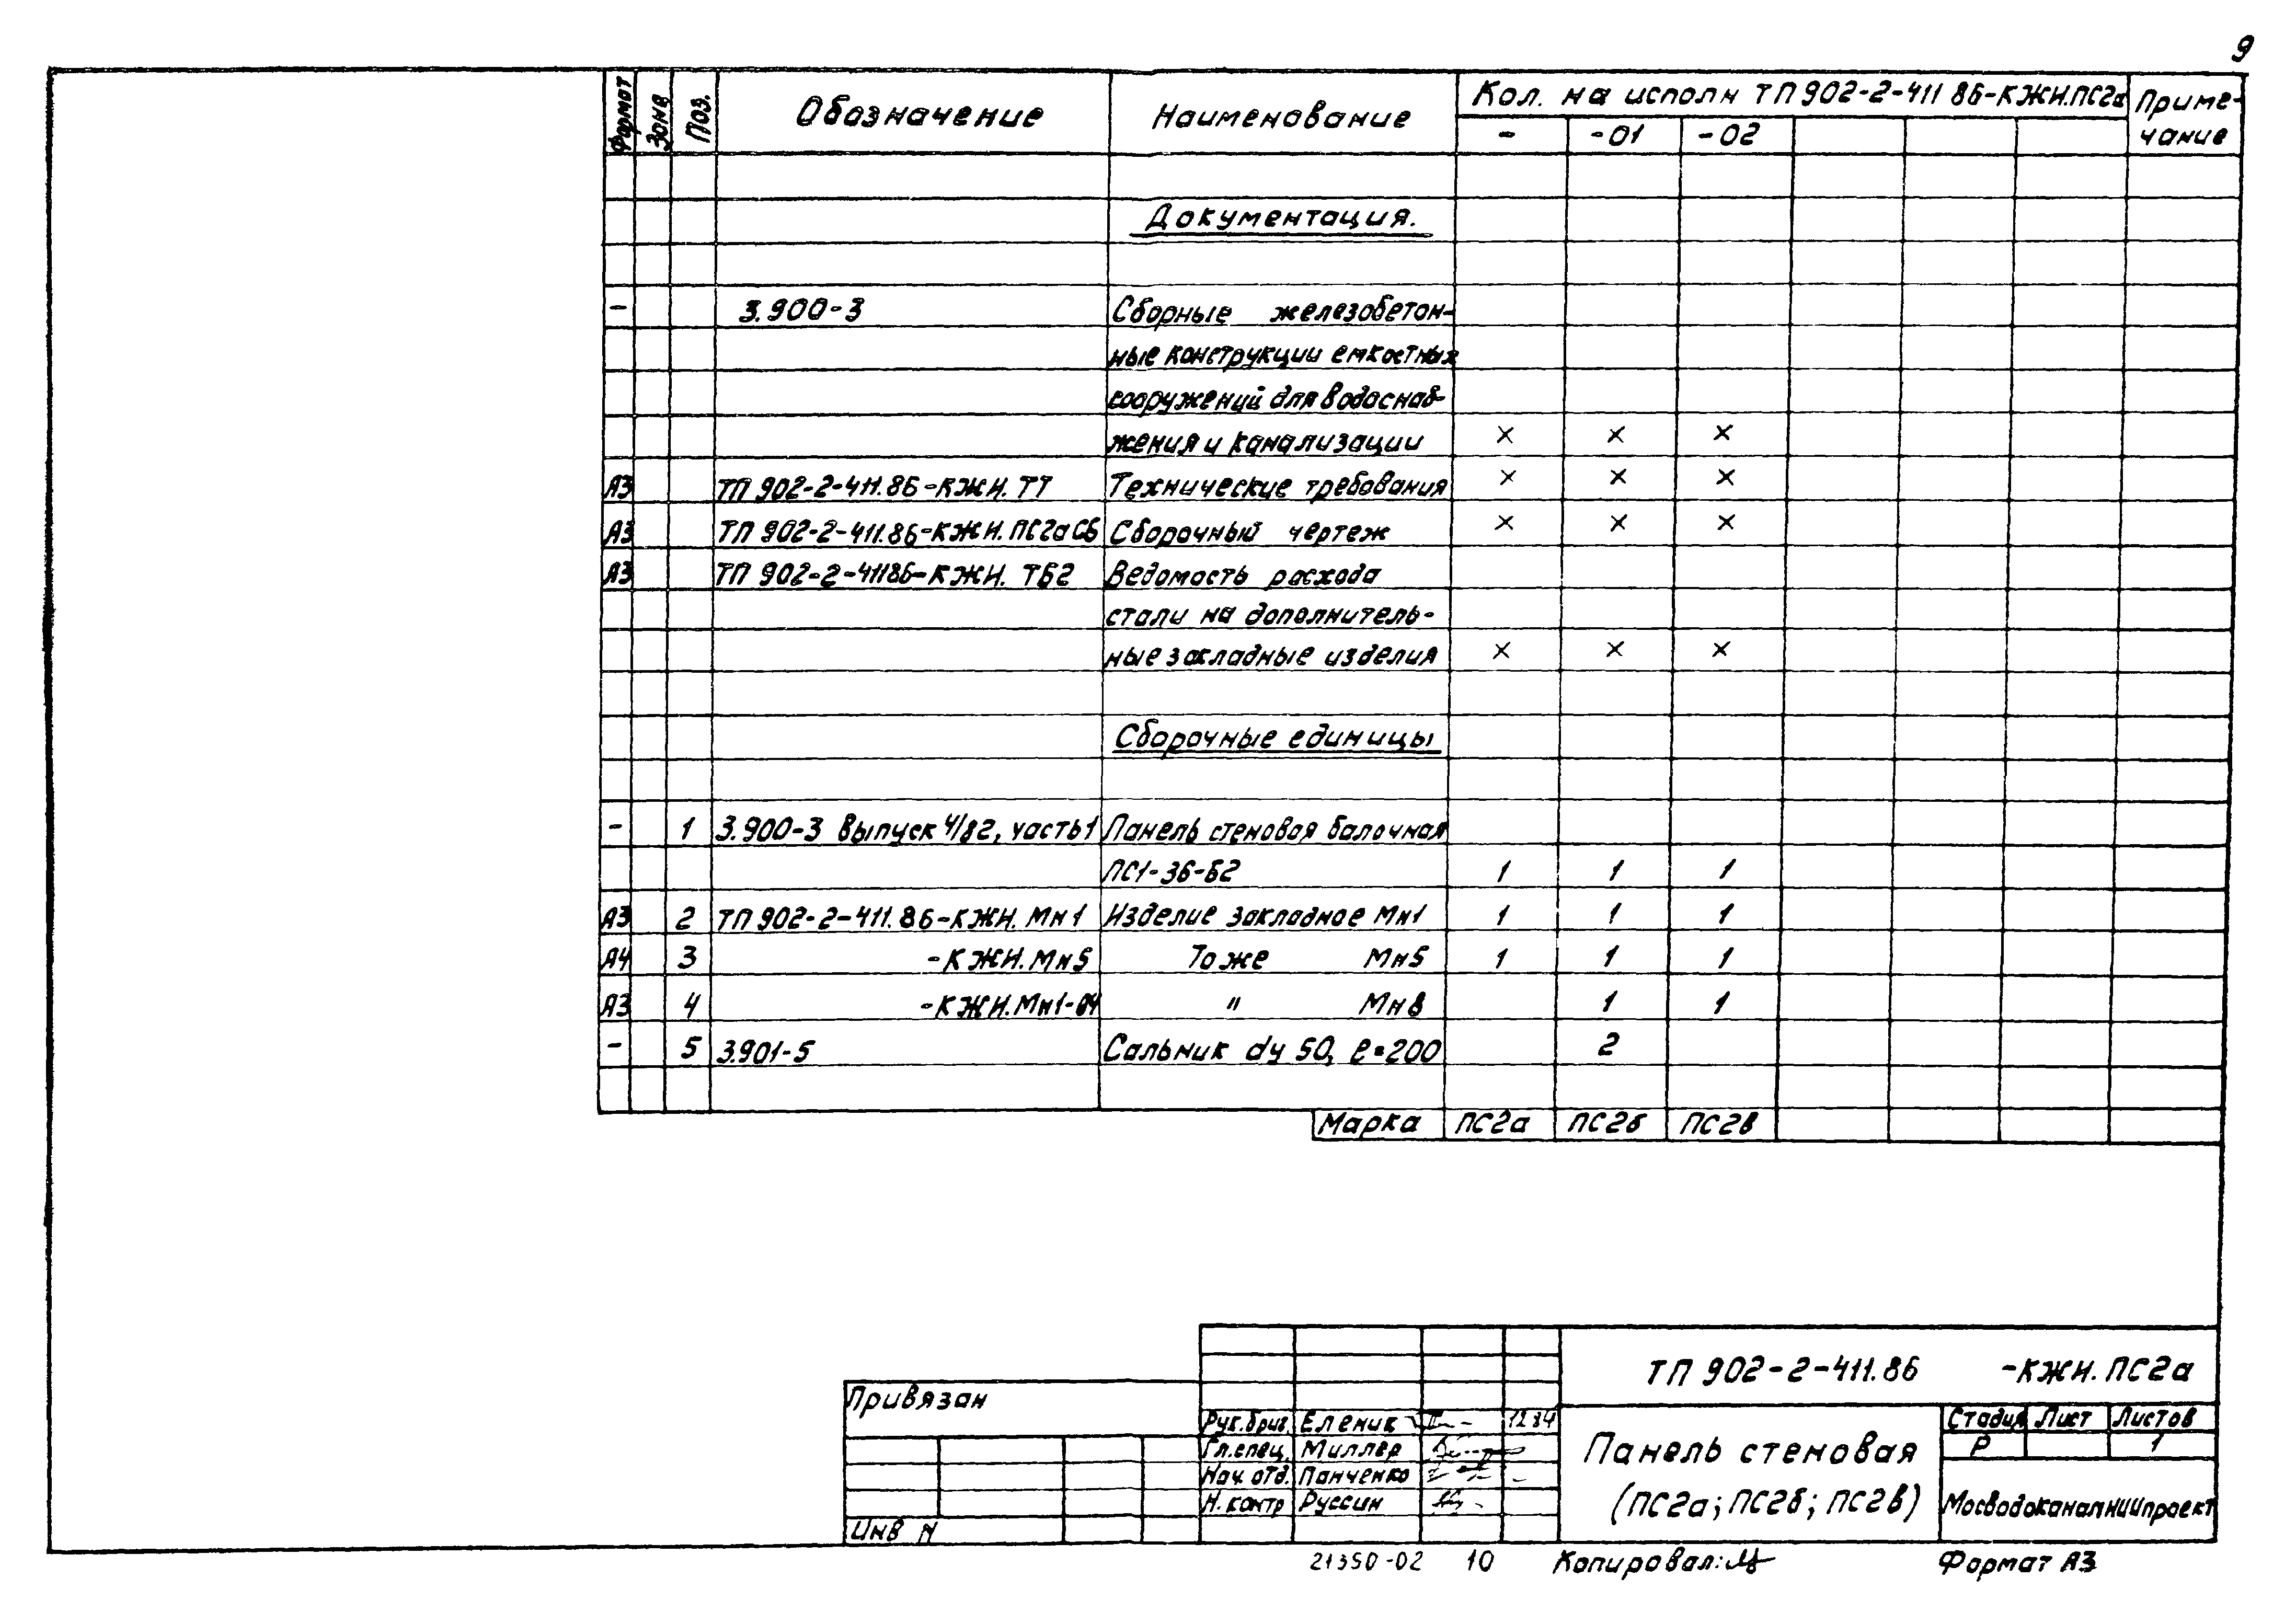 9
Формат Зона Поз. Обозначение Наименование Кол. на исполн ТП 902-2-411 86-КЖИ.ПС2а Приме-
- -01 -02 чание
Документация.
- 3.900-3 Сборные железобетон-
ные конструкции емкостных
сооружений для водоснаб-
жения и канализации × × ×
А3 ТП 902-2-411.86-КЖИ. ТТ Технические требования × × ×
А3 ТП 902-2-411.86-КЖИ. ПС2а СБ Сборочный чертеж × × ×
А3 ТП 902-2-41186-КЖИ. ТБ2 Ведомость расхода
стали на дополнитель-
ные закладные изделия × × ×
Сборочные единицы
- 1 3.900-3 Выпуск 4/82, часть 1 Панель стеновая балочная
ПС1-36-Б2 1 1 1
А3 2 ТП 902-2-411.86-КЖИ. Мн1 Изделие закладное Мн1 1 1 1
А4 3 -КЖИ.Мн5 То же Мн5 1 1 1
А3 4 -КЖИ.Мн1-04 " Мн8 1 1
- 5 3.901-5 Сальник dу 50, ℓ=200 2
Марка ПС2а ПС2б ПС2в
ТП 902-2-411.86 -КЖИ. ПС2а
Привязан
Рук.бриг. Еленик 12 84
Гл.спец. Миллер
Нач. отд. Панченко
Н. контр Руссин
Инв N
Панель стеновая
(ПС2а; ПС2б; ПС2в)
Стадия Лист Листов
Р 1
Мосводоканалниипроект
21350-02 10 Копировал: Формат А3